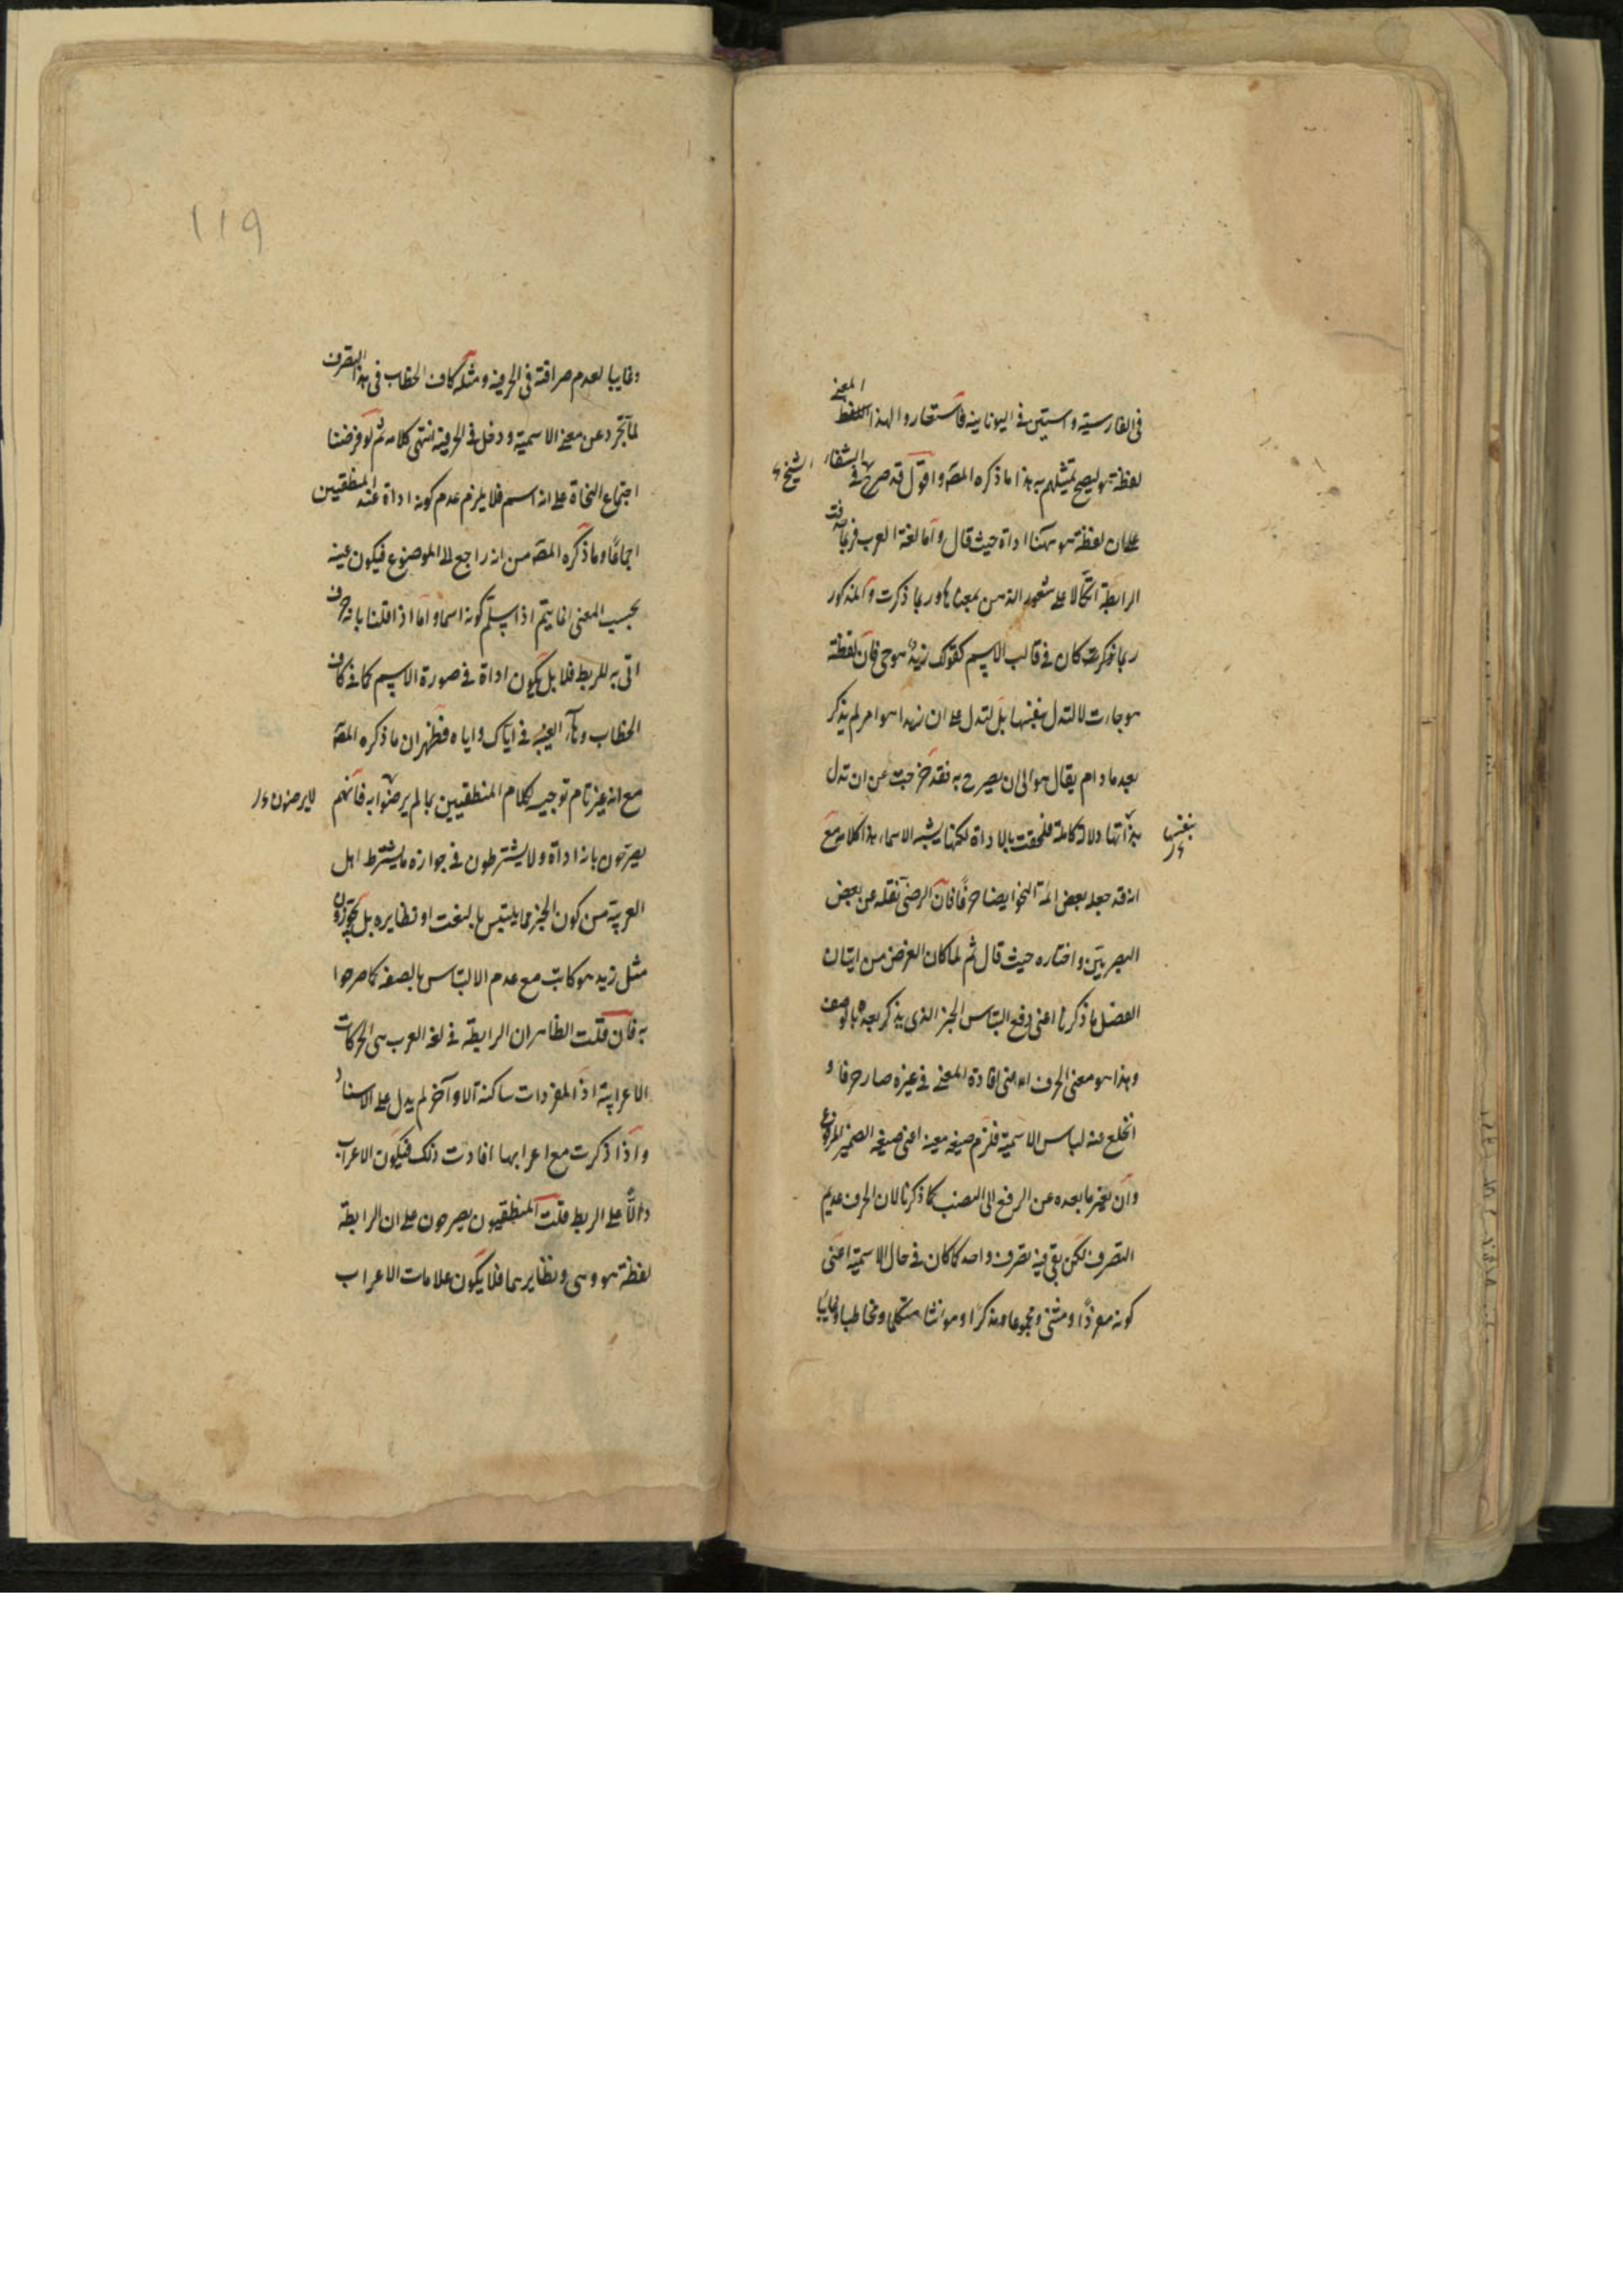 فى الفارسية واستين فى اليونانية فاستعاروا لهذا المعنى
لفظة هو ليصح تمثيلهم به هذا ما ذكره المصه واقول قد صرح الشيخ فى الشفاء
على ان لفظة هو ههنا اداة حيث قال واما لغة العرب فربما حذفت
الرابطة اتكالا على شعور الذهن بمعناها وربما ذكرت والمذكور
ربما كان فى قالب الاسم كقولك زيد هو حى فان لفظة
هو جاءت لا لتدل بنفسها بل لتدل على ان زيدا هو امر لم يذكر
بعد ما دام يقال هو الى ان يصرح به فقد خرجت عن ان تدل
بذاتها دلالة كاملة فلحقت بالاداة لكنها يشبه الاسماء هذا كلامه مع
بنفسها
انه قد جعله بعض ائمة النحو ايضا حرفا فان الرضى نقله عن بعض
البصريين واختاره حيث قال ثم لما كان الغرض من اتيان
الفصل ما ذكرنا اعنى دفع التباس الخبر الذى يذكر بعده بالوصف
وهذا هو معنى الحرف اعنى افادة المعنى فى غيره صار حرفا و
انخلع عنه لباس الاسمية فلزم صيغة معينة اعنى صيغة الضمير المرفوع
وان تغير ما بعده عن الرفع الى النصب كما ذكرنا لان الحرف عديم
التصرف لكن بقى فيه تصرف واحد كما كان فى حال الاسمية اعنى
كونه مفردا ومثنى ومجموعا ومذكرا ومؤنثا متكلما ومخاطبا وغايبا
119
وغايبا لعدم صراقته فى الحرفية ومثله كاف الخطاب فى هذا التصرف
لما تجرد عن معنى الاسمية ودخل فى الحرفية انتهى كلامه ثم لو فرضنا
اجتماع النحاة على انه اسم فلا يلزم عدم كونه اداة عند المنطقيين
اجماعا وما ذكره المصه من انه راجع الى الموضوع فيكون عينه
بحسب المعنى انما يتم اذا سلم كونه اسما واما اذا قلنا بانه حرف
اتى به للربط فلا بل يكون اداة فى صورة الاسم كما فى كاف
الخطاب وهآء الغيبة فى اياك واياه فظهر ان ما ذكره المصه
مع انه غير تام توجيه لكلام المنطقيين بما لم يرضوا به فانهم
لا يرضون
يصرحون بانه اداة ولا يشترطون فى جوازه ما يشترط اهل
العربية من كون الخبر مما يلتبس بالنعت او نظايره بل يجوزون
مثل زيد هو كاتب مع عدم الالتباس بالصفة كما صرحوا
به فان قلت الظاهر ان الرابطة فى لغة العرب هى الحركات
الاعرابية اذ المفردات ساكنة الاواخر لم يدل على الاسناد
واذا ذكرت مع اعرابها افادت ذلك فيكون الاعراب
دالا على الربط قلت المنطقيون يصرحون على ان الرابطة
لفظة هو وهى ونظايرهما فلا يكون علامات الاعراب